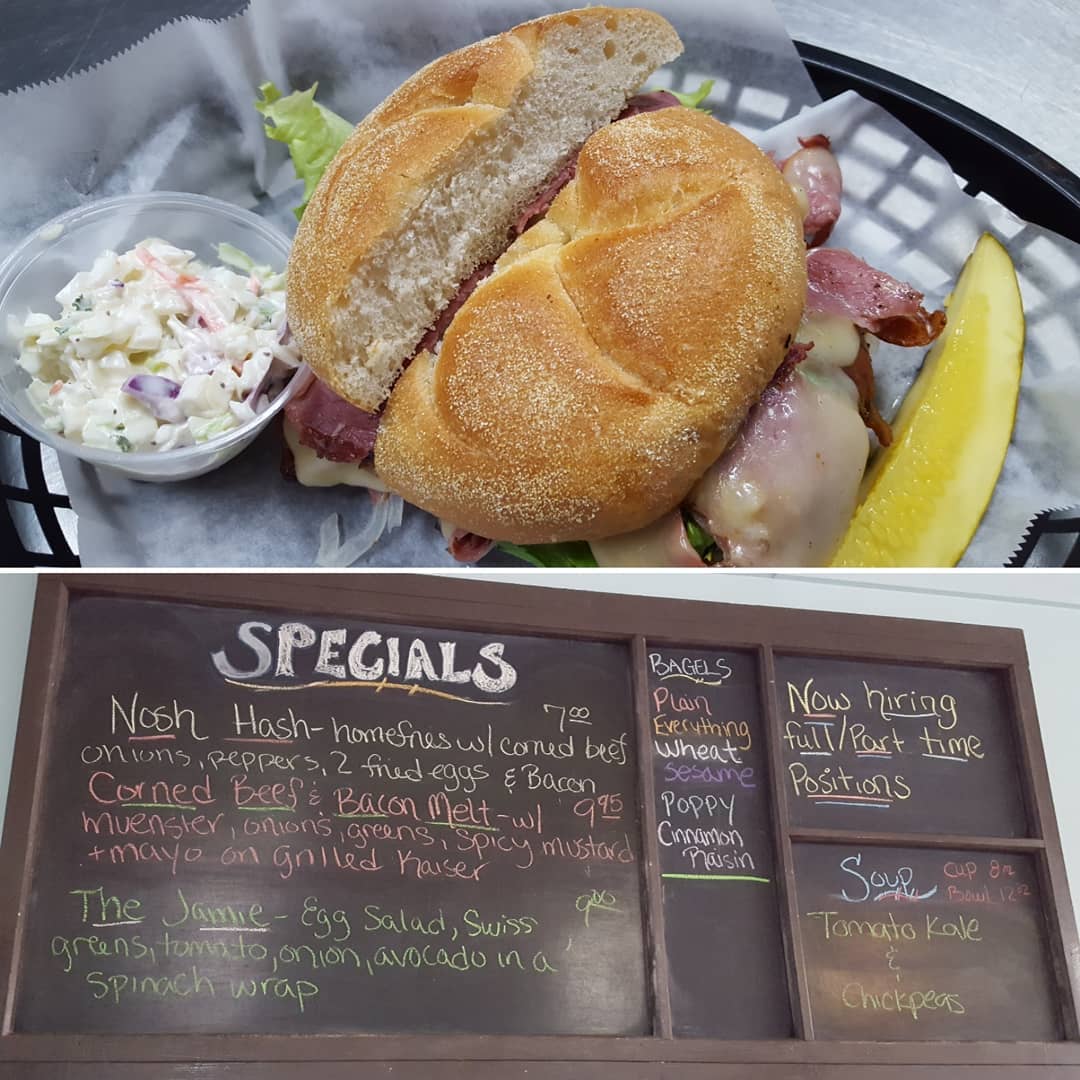 SPECIALS
Nosh Hash - homefries w/ corned beef 7.00
onions, peppers, 2 fried eggs & Bacon
Corned Beef & Bacon Melt - w/ 9.95
muenster, onions, greens, spicy mustard
+ mayo on Grilled Kaiser
The Jamie - Egg Salad, Swiss 9.00
greens, tomato, onion, avocado in a
spinach wrap
BAGELS
Plain
Everything
Wheat
Sesame
POPPY
Cinnamon
Raisin
Now hiring
full/Part time
Positions
Soup
Cup 8oz
Bowl 12oz
Tomato Kale
&
Chickpeas